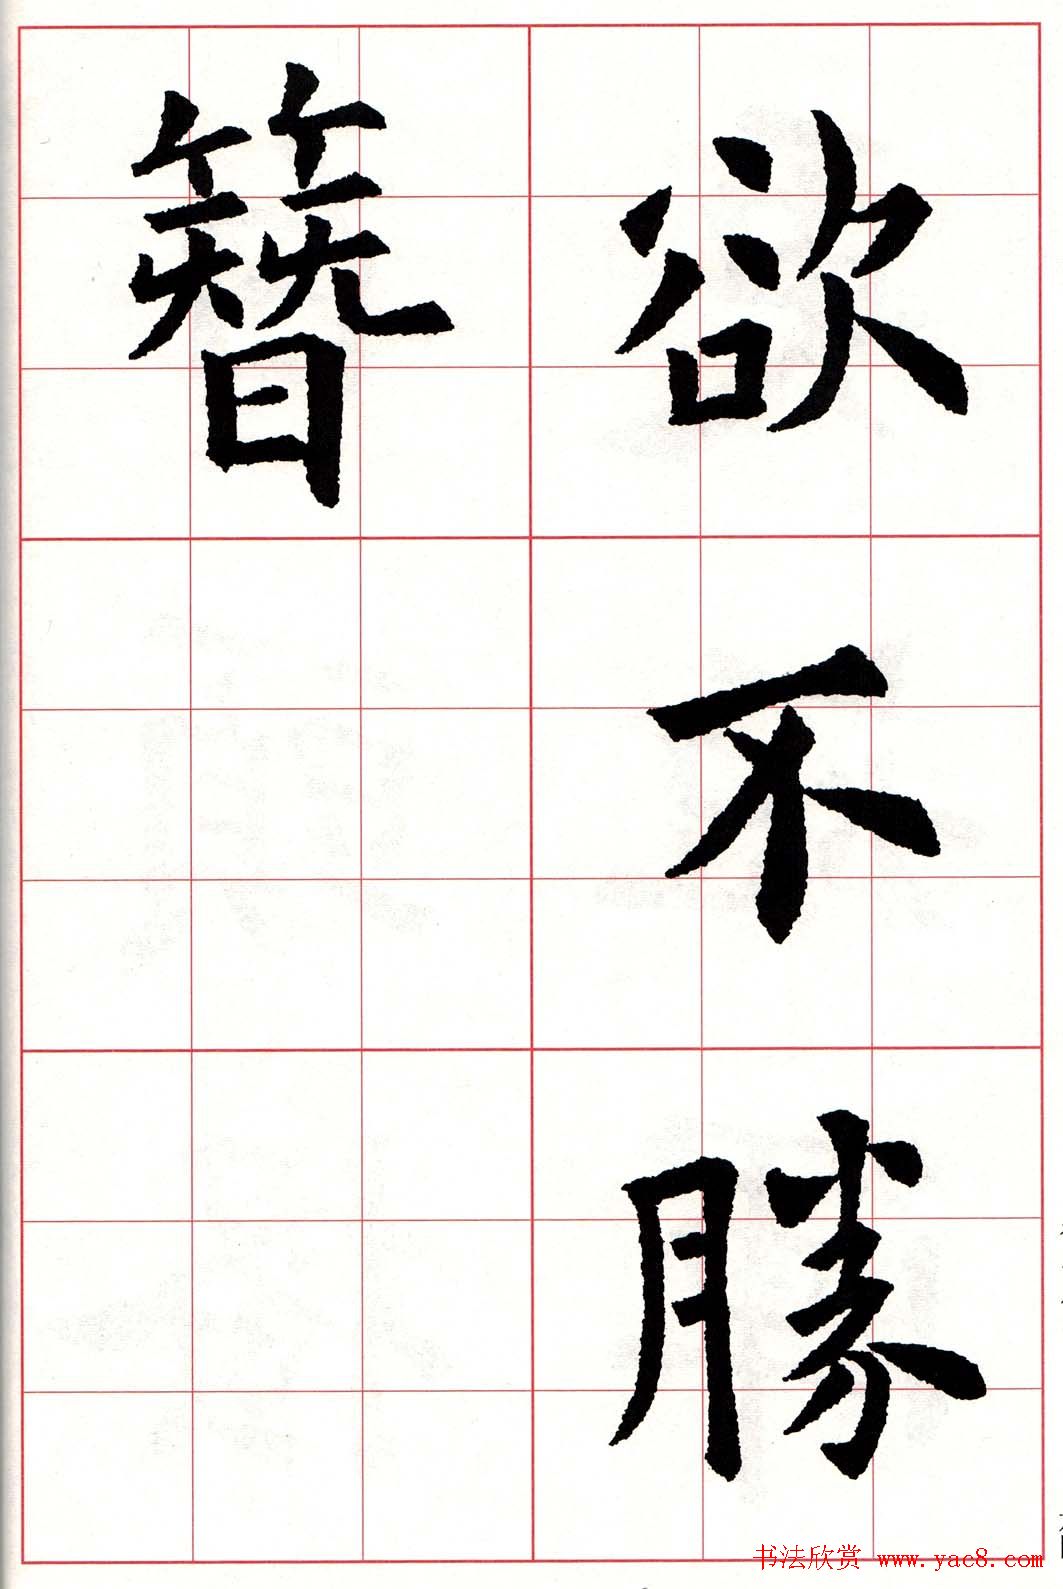 欲不勝
簪
书法欣赏 www.yac8.com